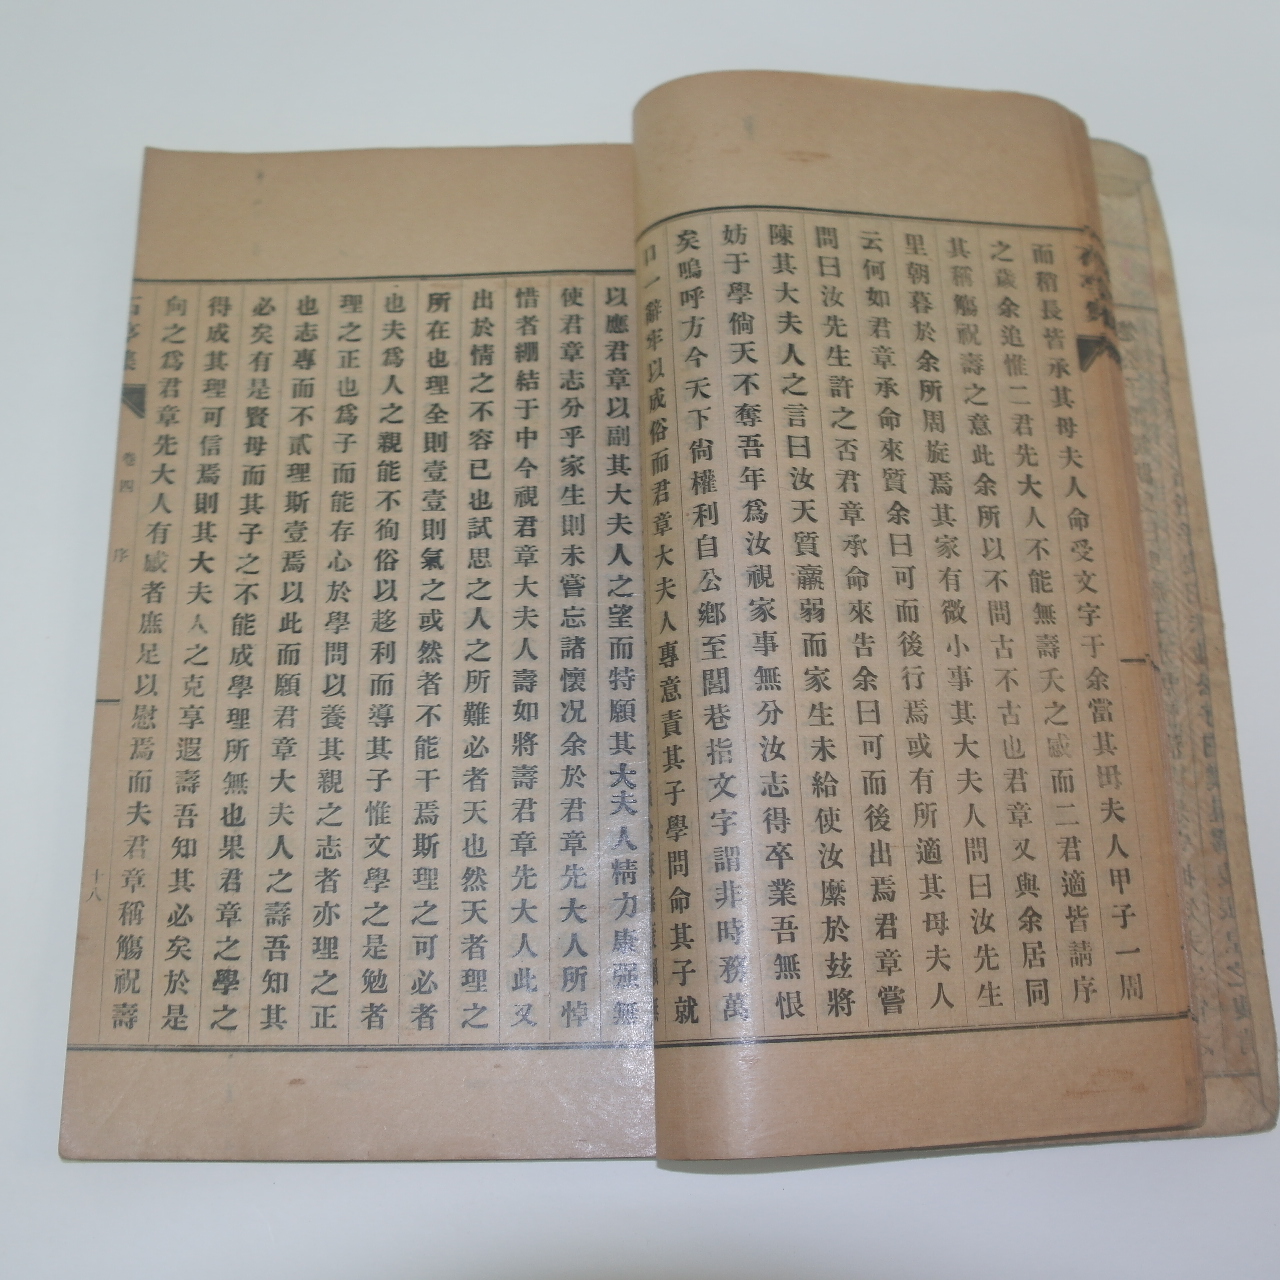 而稍長皆承其母夫人命受文字于余當其母夫人甲子一周
之歲余追惟二君先大人不能無壽夭之感而二君適皆請序
其稱觴祝壽之意此余所以不問古不古也君章又與余居同
里朝暮於余所周旋焉其家有微小事其大夫人問曰汝先生
云何如君章承命來質余曰可而後行焉或有所適其母夫人
問曰汝先生許之否君章承命來告余曰可而後出焉君章嘗
陳其大夫人之言曰汝天質羸弱而家生未給使汝縻於玆將
妨于學倘天不奪吾年爲汝視家事無分汝志得卒業吾無恨
矣嗚呼方今天下尙權利自公鄕至閭巷指文字謂非時務萬
口一辭牢以成俗而君章大夫人專意責其子學問命其子就
以應君章以副其大夫人之望而特願其大夫人精力康强無
使君章志分乎家生則未嘗忘諸懷况余於君章先大人所悼
惜者綢結于中今視君章大夫人壽如將壽君章先大人此又
出於情之不容已也試思之人之所難必者天也然天者理之
所在也理全則壹壹則氣之或然者不能干焉斯理之可必者
也夫爲人之親能不徇俗以趍利而導其子惟文學之是勉者
理之正也爲子而能存心於學問以養其親之志者亦理之正
也志專而不貳理斯壹焉以此而願君章大夫人之壽吾知其
必矣有是賢母而其子之不能成學理所無也果君章之學之
得成其理可信焉則其大夫人之克享遐壽吾知其必矣於是
向之爲君章先大人有感者庶足以慰焉而夫君章稱觴祝壽
石亭集 卷四 序 十八